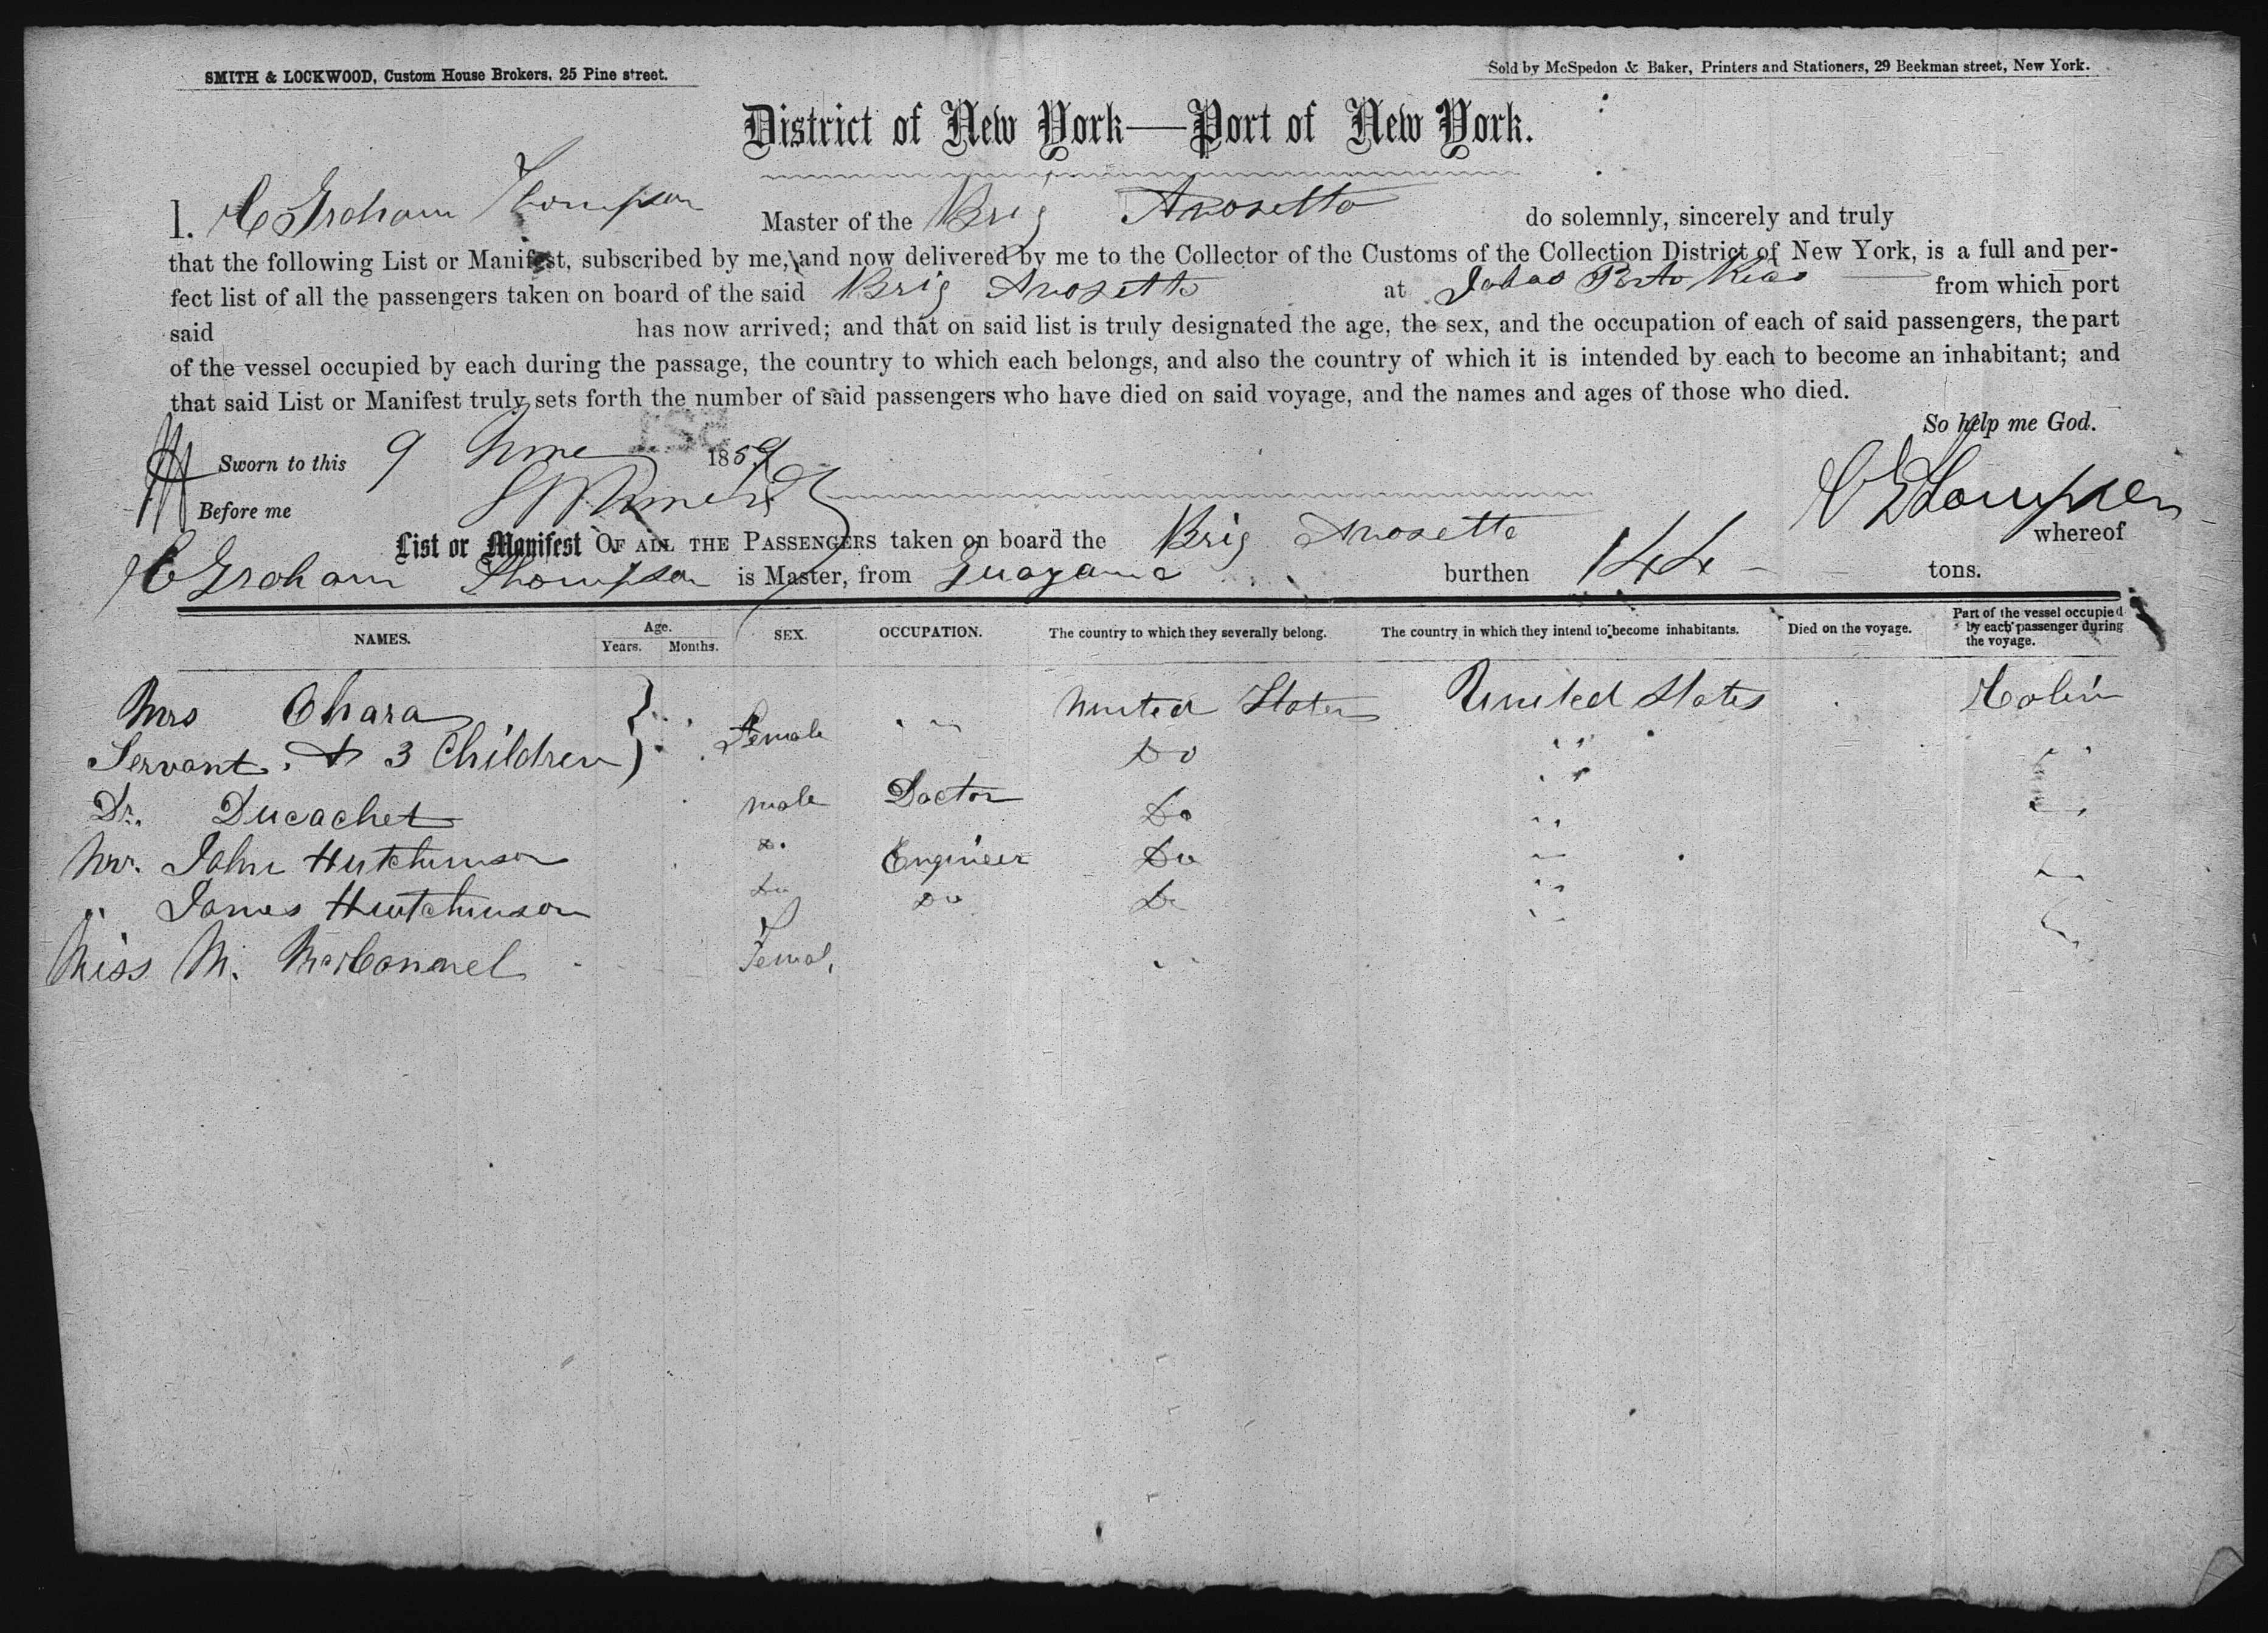 SMITH & LOCKWOOD, Custom House Brokers, 25 Pine street.
Sold by McSpedon & Baker, Printers and Stationers, 29 Beekman street, New York.
District of New York—Port of New York.
I. C Graham Thompson Master of the Brig do solemnly, sincerely and truly
that the following List or Manifest, subscribed by me, and now delivered by me to the Collector of the Customs of the Collection District of New York, is a full and per-
fect list of all the passengers taken on board of the said Brig at Porto from which port
said has now arrived; and that on said list is truly designated the age, the sex, and the occupation of each of said passengers, the part
of the vessel occupied by each during the passage, the country to which each belongs, and also the country of which it is intended by each to become an inhabitant; and
that said List or Manifest truly sets forth the number of said passengers who have died on said voyage, and the names and ages of those who died.
So help me God.
Sworn to this 9 June 1859
Before me
C G Thompson
List or Manifest OF ALL THE PASSENGERS taken on board the Brig whereof
C Graham Thompson is Master, from burthen 144 tons.
NAMES. Age. Years. Months. SEX. OCCUPATION. The country to which they severally belong. The country in which they intend to become inhabitants. Died on the voyage. Part of the vessel occupied by each passenger during the voyage.
Mrs Ohara Female United States United States Cabin
Servant & 3 Children Do " "
Dr. Ducachet male Doctor Do " "
Mr. John Hutchinson Do Engineer Do " "
" James Hutchinson Do Do Do " "
Miss M. McConnel Female " "